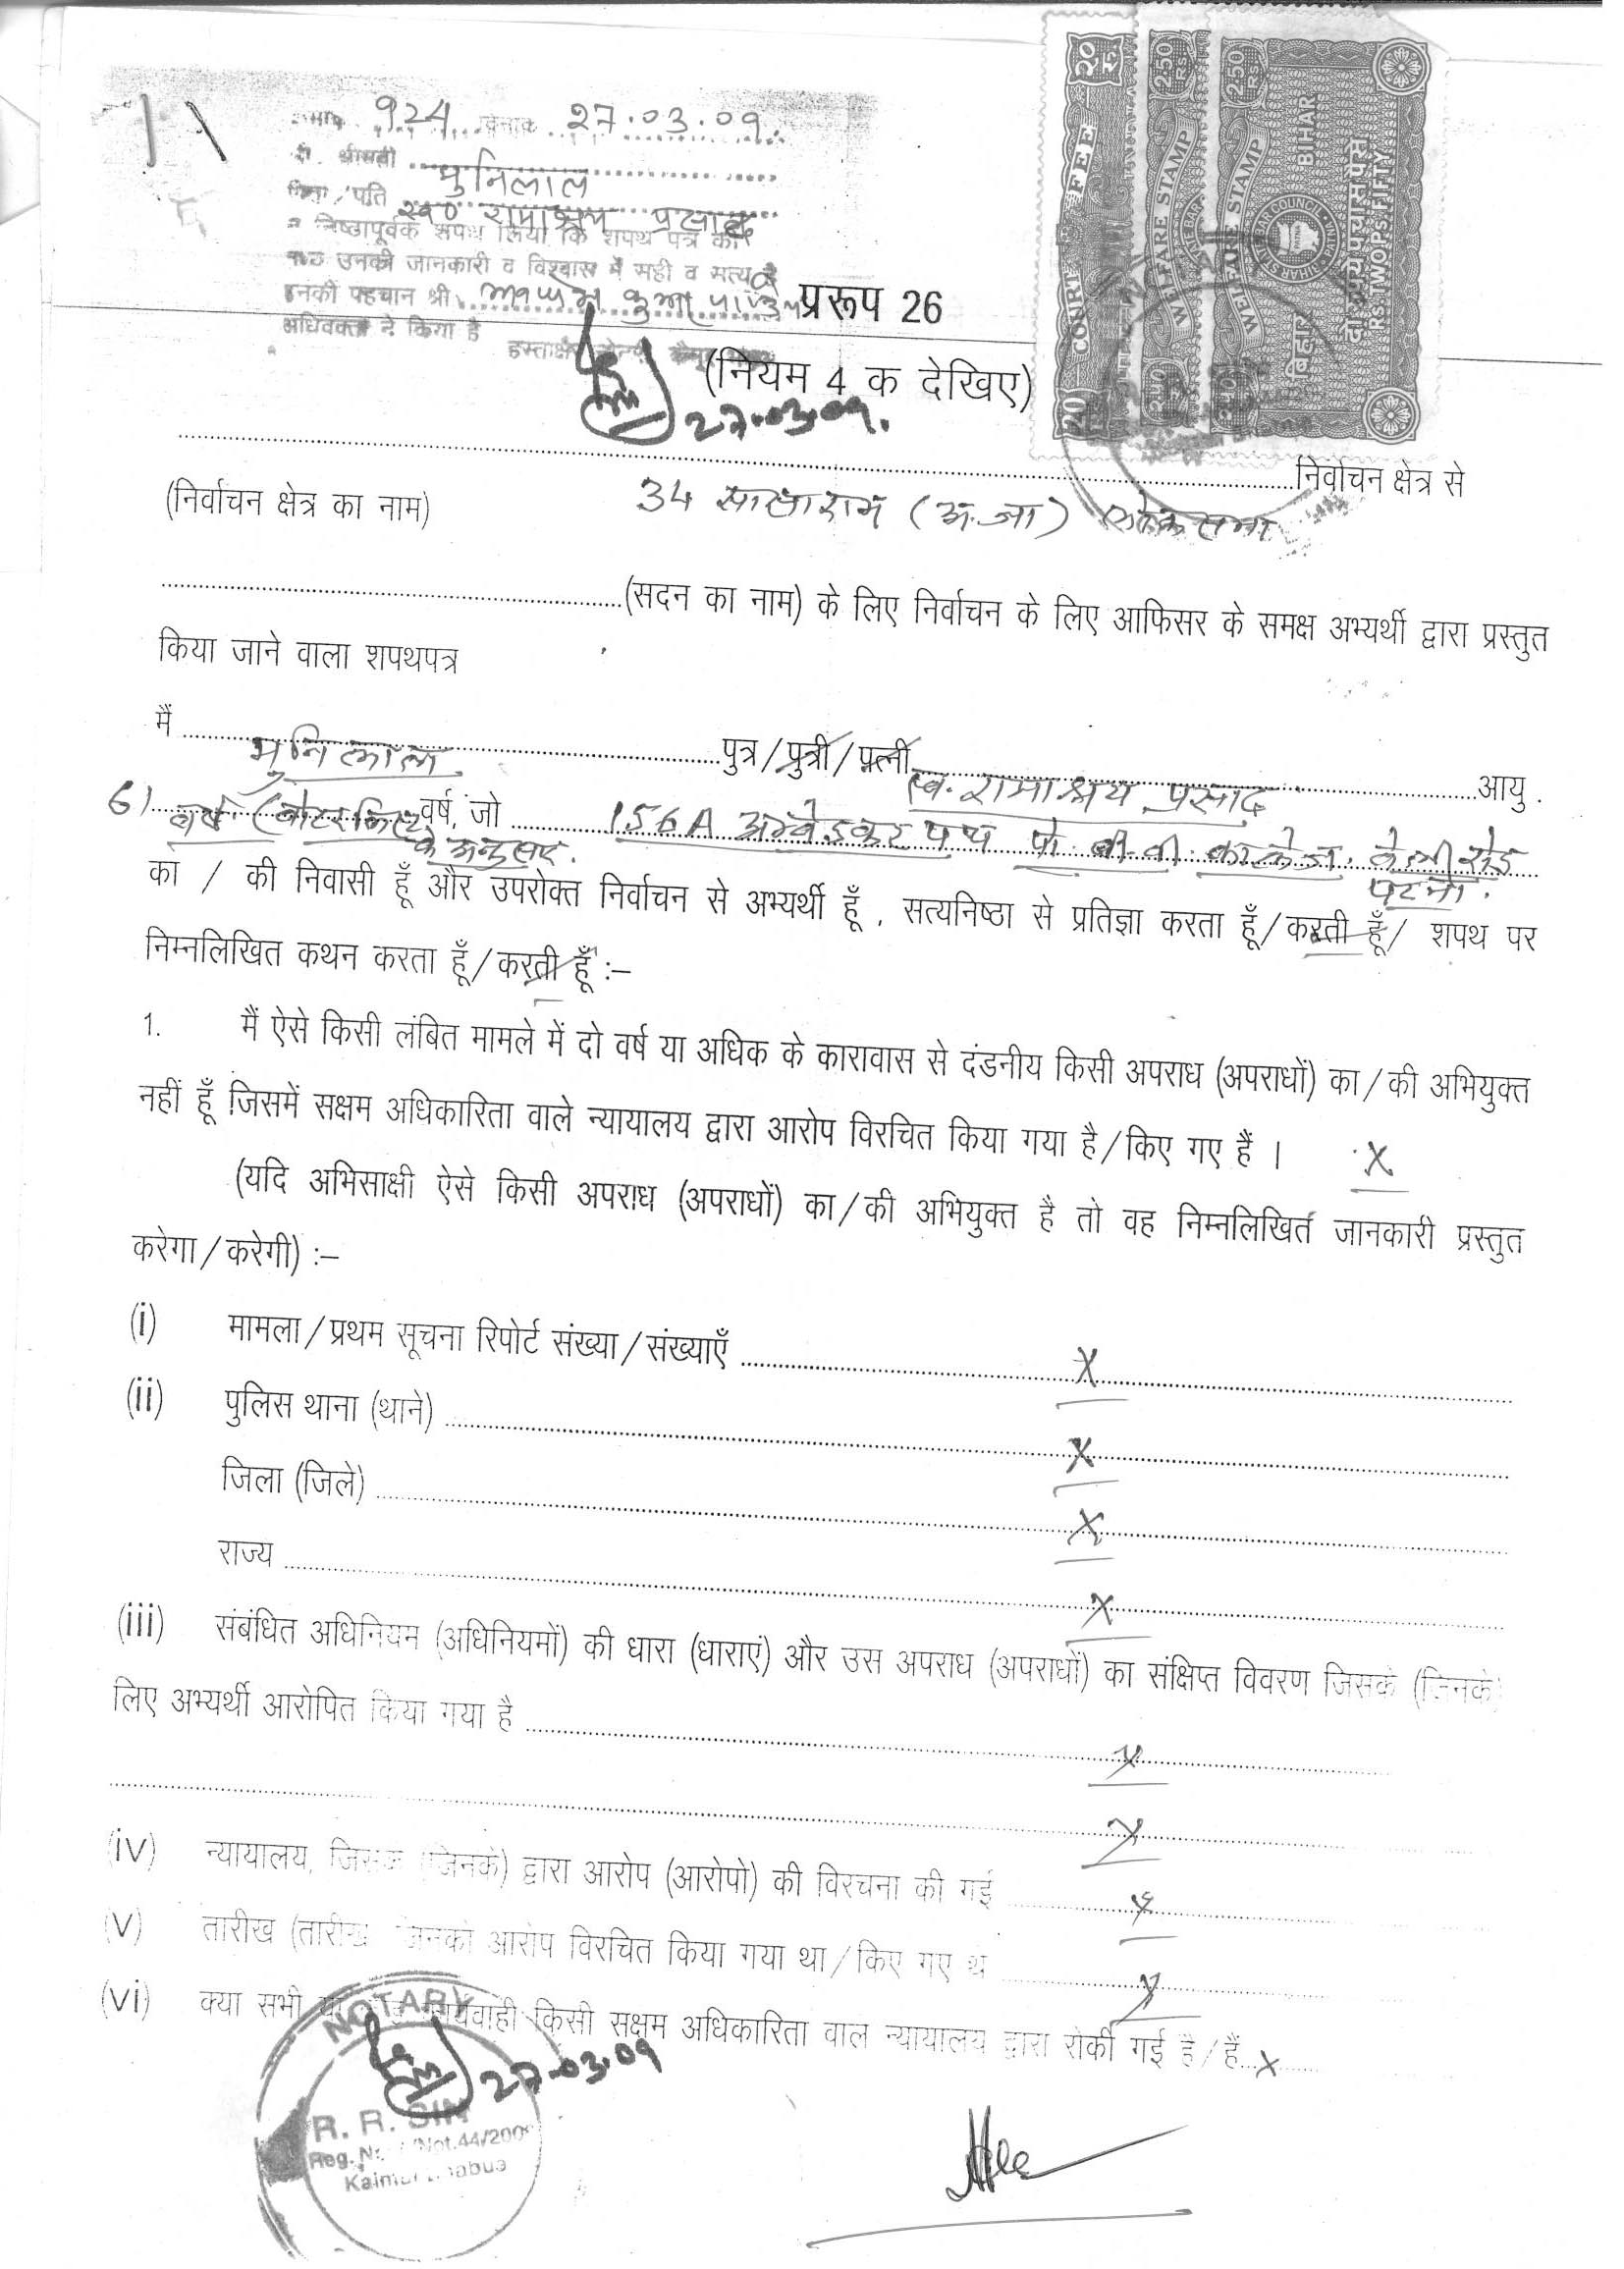 924 दिनांक 27.03.09
श्रीमती मुनिलाल
पिता/पति स्व० रामाश्रय प्रसाद
निष्ठापूर्वक शपथ लिया कि शपथ पत्र की
उनकी जानकारी व विश्वास में सही व सत्य है
इनकी पहचान श्री कुमार
अधिवक्ता ने किया है
27.03.09.
COURT FEE
20
20 रु.
WELFARE STAMP
250 RS
WELFARE STAMP
250 RS
BIHAR
बिहार
BIHAR STATE BAR COUNCIL
दो रुपये पचास पैसे
RS.TWO PS.FIFTY
प्ररूप 26
(नियम 4 क देखिए)
निर्वाचन क्षेत्र से
(निर्वाचन क्षेत्र का नाम) 34 सासाराम (अ.जा) लोकसभा
(सदन का नाम) के लिए निर्वाचन के लिए आफिसर के समक्ष अभ्यर्थी द्वारा प्रस्तुत
किया जाने वाला शपथपत्र
मैं मुनिलाल पुत्र/पुत्री/पत्नी स्व. रामाश्रय प्रसाद आयु
61 वर्ष (वोटर लिस्ट के अनुसार. वर्ष, जो 156A अम्बेडकर पथ पो. बी.वी. कालेज. बेली रोड पटना.
का / की निवासी हूँ और उपरोक्त निर्वाचन से अभ्यर्थी हूँ , सत्यनिष्ठा से प्रतिज्ञा करता हूँ/करती हूँ/ शपथ पर
निम्नलिखित कथन करता हूँ/करती हूँ :–
1. मैं ऐसे किसी लंबित मामले में दो वर्ष या अधिक के कारावास से दंडनीय किसी अपराध (अपराधों) का/की अभियुक्त
नहीं हूँ जिसमें सक्षम अधिकारिता वाले न्यायालय द्वारा आरोप विरचित किया गया है/किए गए हैं । X
(यदि अभिसाक्षी ऐसे किसी अपराध (अपराधों) का/की अभियुक्त है तो वह निम्नलिखित जानकारी प्रस्तुत
करेगा/करेगी) :–
(i) मामला/प्रथम सूचना रिपोर्ट संख्या/संख्याएँ X
(ii) पुलिस थाना (थाने) X
जिला (जिले) X
राज्य X
(iii) संबंधित अधिनियम (अधिनियमों) की धारा (धाराएं) और उस अपराध (अपराधों) का संक्षिप्त विवरण जिसके (जिनके)
लिए अभ्यर्थी आरोपित किया गया है X
X
(iv) न्यायालय, जिसके (जिनके) द्वारा आरोप (आरोपो) की विरचना की गई X
(v) तारीख (तारीख जिनको आरोप विरचित किया गया था/किए गए थे X
(vi) क्या सभी या कार्यवाही किसी सक्षम अधिकारिता वाले न्यायालय द्वारा रोकी गई है/हैं X
NOTARY
27.03.09
R. R. SIN
Reg. No. Not.44/200